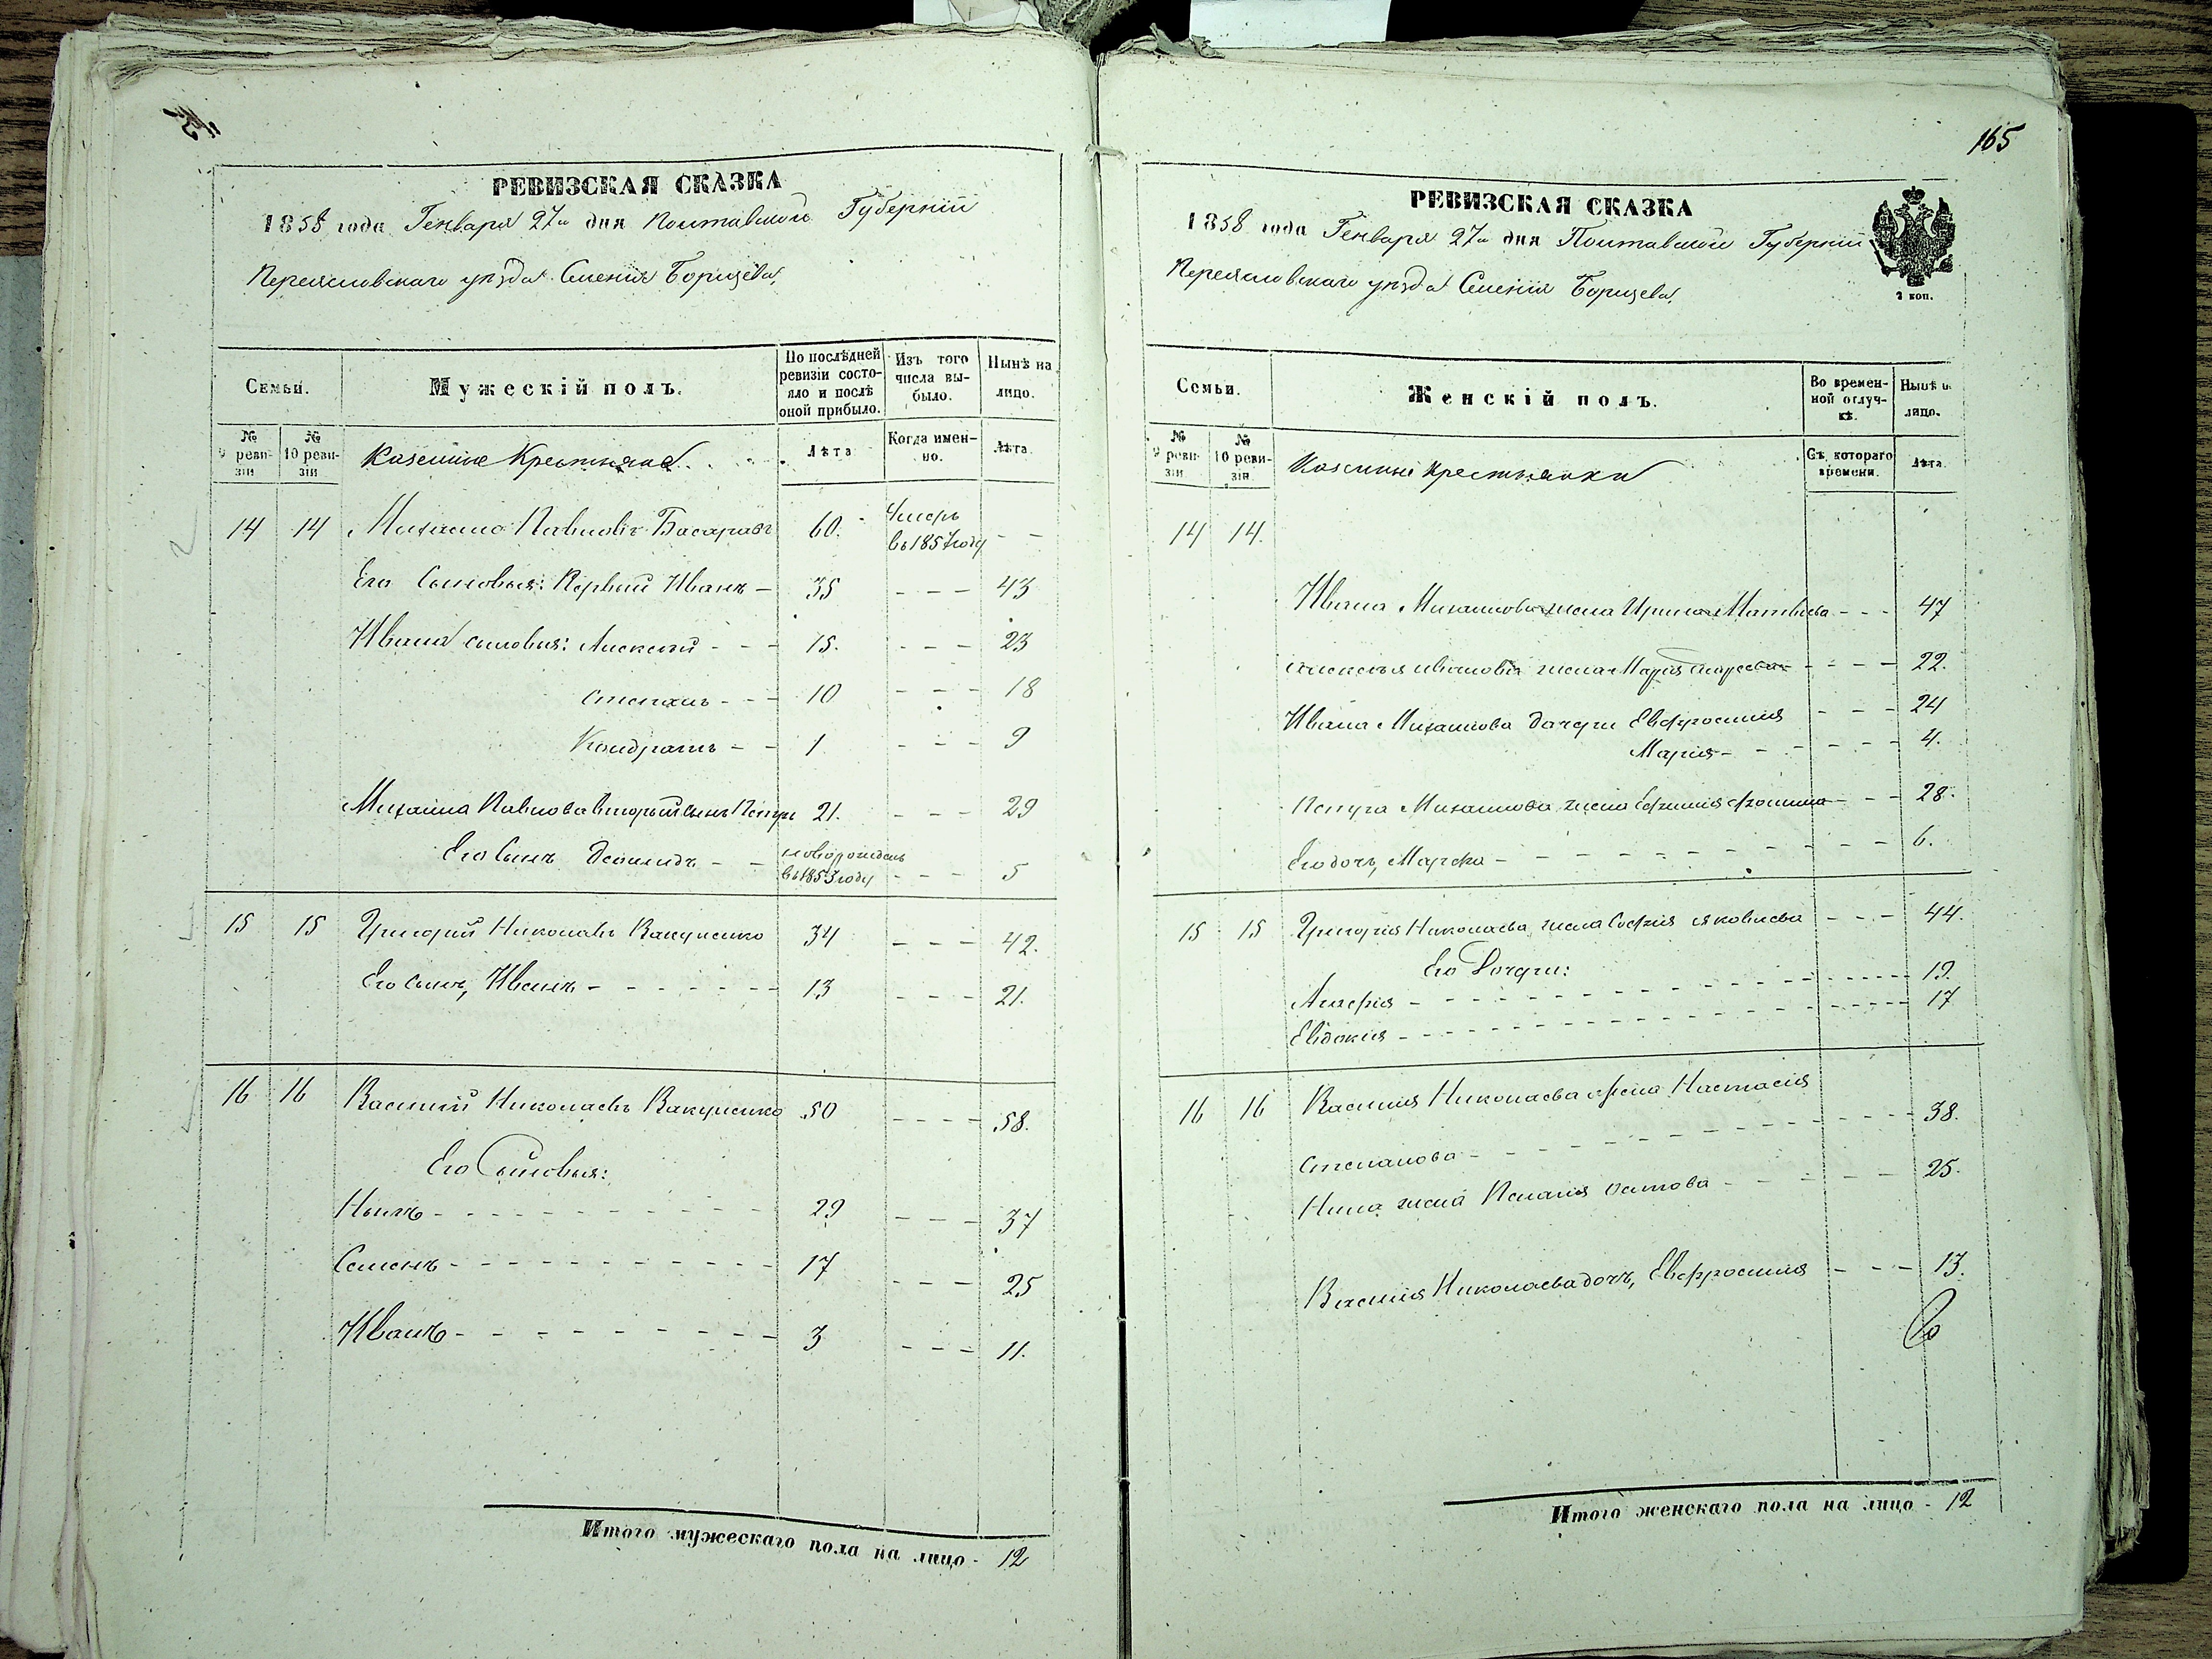 165
РЕВИЗСКАЯ СКАЗКА
1858 года Генваря 27го дня Полтавской Губерніи
Переяславскаго уезда Селенія Борщева,
Семьи.
Мужескій полъ.
По послѣдней ревизіи состояло и послѣ оной прибыло.
Изъ того числа выбыло.
Нынѣ на лицо.
№ 9 ревизіи
№ 10 ревизіи
Казенные Крестьяне
Лѣта
Когда именно.
Лѣта.
14 14 Михаило Павловъ Басарабъ 60. Умеръ въ 1857 году - -
Его Сыновья: Первый Иванъ - 35 - - - 43
Ивана сыновья: Алексей - - - 15. - - - 23
Степанъ - - - 10 - - - 18
Кондратъ - - 1. - - - 9
Михаила Павлова вторый сынъ Петръ 21. - - - 29
Его Сынъ Деомидъ - - новорожденъ въ 1853 году - - - 5
15 15 Григорий Николаевъ Вакуленко 34 - - - 42.
Его сынъ, Иванъ - - - - - - 13 - - - 21.
16 16 Василий Николаевъ Вакуленко 50 - - - - 58.
Его Сыновья:
Нилъ - - - - - - - - - - 29 - - - 37
Семенъ - - - - - - - - - - 17 - - - 25
Иванъ - - - - - - - - - 3 - - - 11.
Итого мужескаго пола на лицо - 12
РЕВИЗСКАЯ СКАЗКА
1858 года Генваря 27го дня Полтавской Губерніи
Переяславскаго уезда Селенія Борщева,
2 коп.
Семьи.
Женскій полъ.
Во временной отлучкѣ.
Нынѣ на лицо.
№ 9 ревизіи
№ 10 ревизіи.
Казенные крестьянки
Съ котораго времени.
Лѣта.
14 14.
Ивана Михаилова жена Ирина Матвіева - - - 47
Алексея Иванова жена Марія - - - - 22.
Ивана Михаилова дочери Евфросинія - - - 24
Марія - - - - - - - 4.
Петра Михаилова жена Евфимія Фомина - - 28.
Его дочь, Марфа - - - - - - - - - - - 6.
15 15 Григорія Николаева жена Софія Яковлева - - - 44.
Его Дочери:
Агафія - - - - - - - - - - - 19.
Евдокия - - - - - - - - - - - 17
16 16 Василія Николаева жена Настасія
Степанова - - - - - - - - - - - 38.
Нила жена Пелагія - - - - - 25.
Василія Николаева дочь, Евфросинія - - - 13.
Итого женскаго пола на лицо - 12